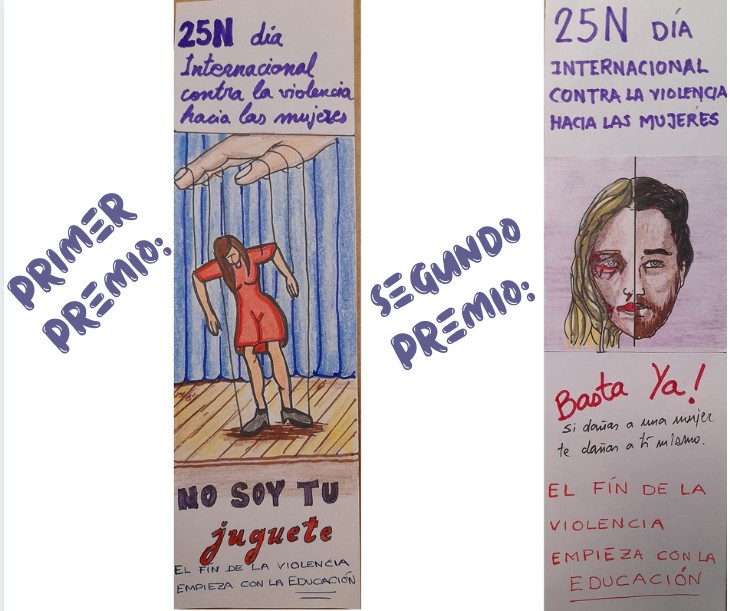 PRIMER
PREMIO:
25N día
Internacional
contra la violencia
hacia las mujeres
NO SOY TU
juguete
EL FÍN DE LA VIOLENCIA
EMPIEZA CON LA EDUCACIÓN
SEGUNDO
PREMIO:
25N DÍA
INTERNACIONAL
CONTRA LA VIOLENCIA
HACIA LAS MUJERES
Basta Ya!
Si dañas a una mujer
te dañas a tí mismo.
EL FÍN DE LA
VIOLENCIA
EMPIEZA CON LA
EDUCACIÓN